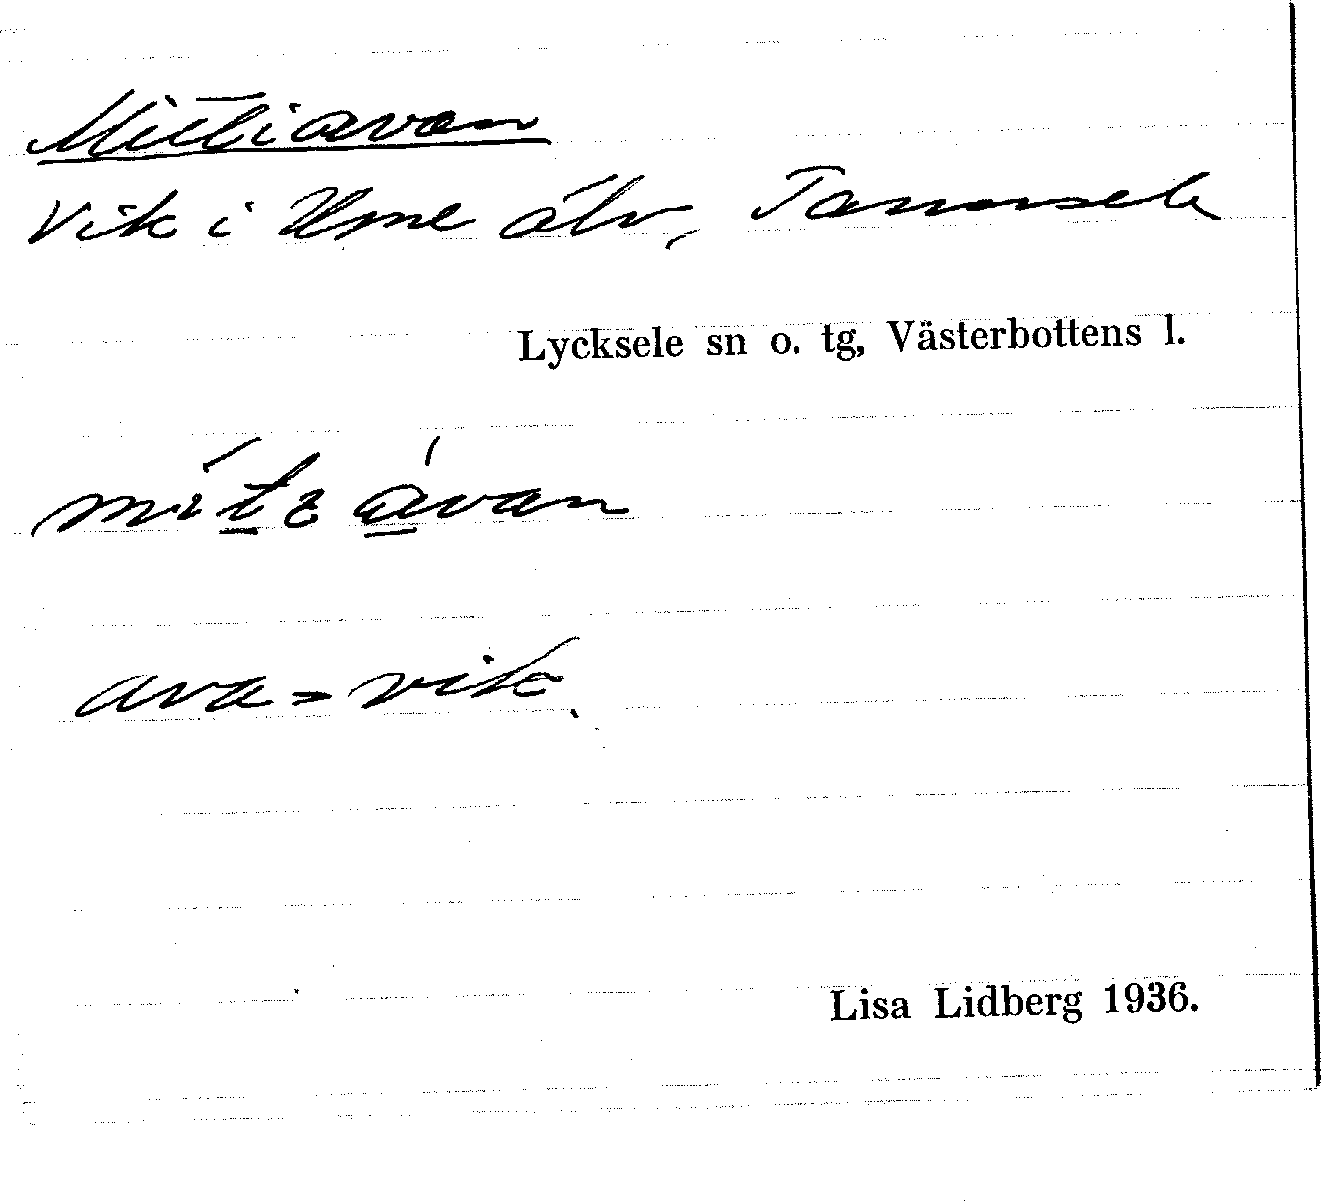 Mittiavan
Vik i Ume älv, Tannsele
Lycksele sn o. tg, Västerbottens l.
ava = vik.
Lisa Lidberg 1936.